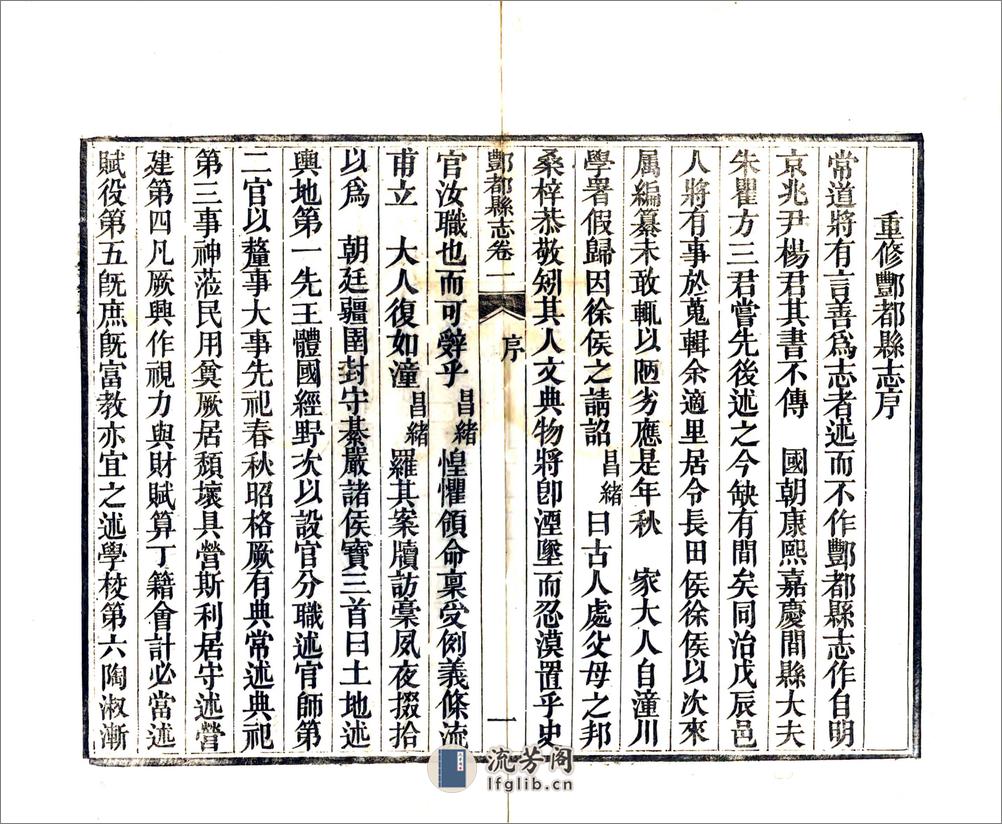 重修酆都縣志序
常道將有言善爲志者述而不作酆都縣志作自明
京兆尹楊君其書不傳　國朝康熙嘉慶間縣大夫
朱瞿方三君嘗先後述之今缺有間矣同治戊辰邑
人將有事於蒐輯余適里居令長田侯徐侯以次來
属編纂未敢輒以陋劣應是年秋　家大人自潼川
學署假歸因徐侯之請詔昌緒曰古人處父母之邦
桑梓恭敬矧其人文典物將卽湮墜而忍漠置乎史
酆都縣志卷一　序　一
官汝職也而可辭乎昌緒惶懼領命稟受例義條流
甫立　大人復如潼昌緒羅其案牘訪彙夙夜掇拾
以爲　朝廷疆圉封守綦嚴諸侯寶三首曰土地述
輿地第一先王體國經野次以設官分職述官師第
二官以釐事大事先祀春秋昭格厥有典常述典祀
第三事神蒞民用奠厥居頽壞具營斯利居守述營
建第四凡厥興作視力與財賦算丁籍會計必當述
賦役第五旣庶旣富教亦宜之述學校第六陶淑漸
流芳阁
lfglib.cn